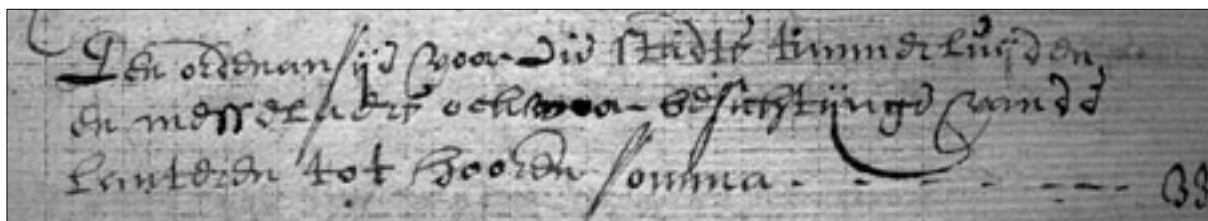 Een ordenansijd voor die stadts timmerluijden
en messelaers ock voor besichtijnge vande
lanteren tot hooren somma - - - - - 33